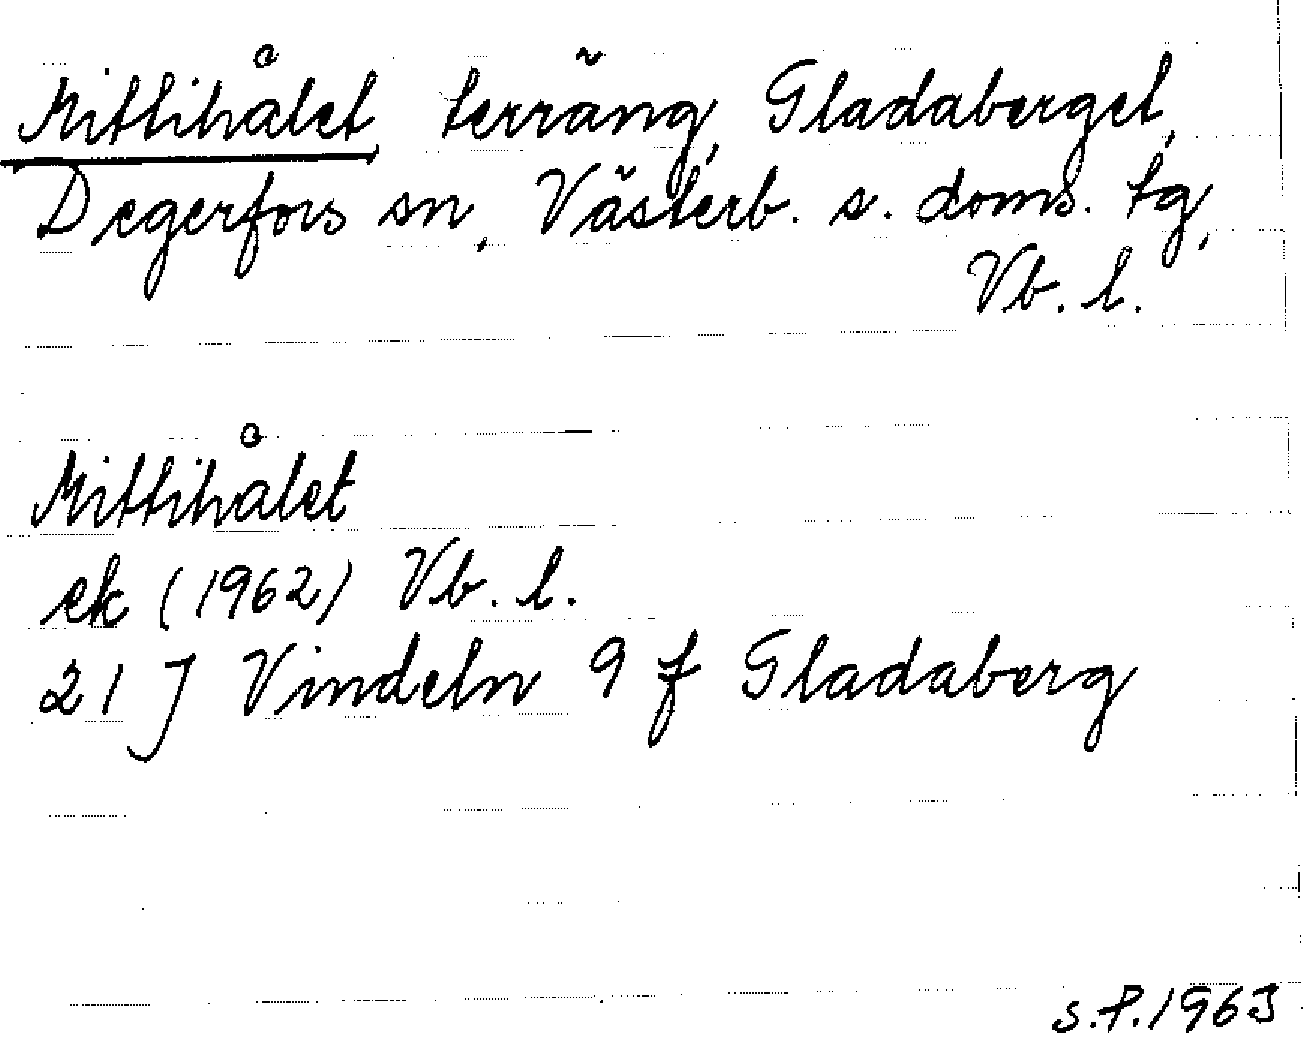 Mittihålet, terräng, Gladaberget,
Degerfors sn, Västerb. s. doms. tg,
Vb. l.
Mittihålet
ek (1962) Vb. l.
21 J Vindeln 9 f Gladaberg
S.P. 1963